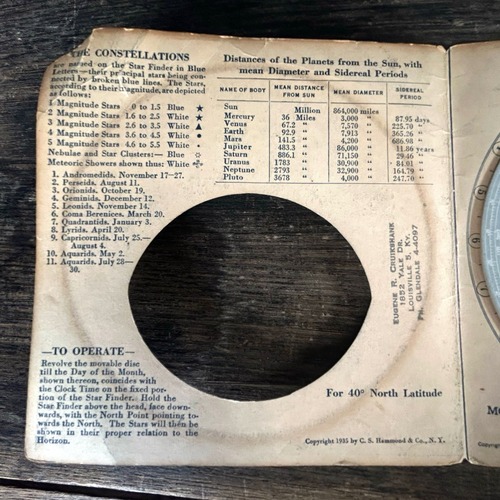 THE CONSTELLATIONS
are named on the Star Finder in Blue
Letters—their principal stars being con-
nected by broken blue lines. The Stars,
according to their magnitude, are depicted
as follows:
1 Magnitude Stars 0 to 1.5 Blue ★
2 Magnitude Stars 1.6 to 2.5 White ★
3 Magnitude Stars 2.6 to 3.5 White ▲
4 Magnitude Stars 3.6 to 4.5 White •
5 Magnitude Stars 4.6 to 5.5 White •
Nebulae and Star Clusters:— Blue
Meteoric Showers shown thus: White
1. Andromedids. November 17—27.
2. Perseids. August 11.
3. Orionids. October 19.
4. Geminids. December 12.
5. Leonids. November 14.
6. Coma Berenices. March 20.
7. Quadrantids. January 3.
8. Lyrids. April 20.
9. Capricornids. July 25.—
August 4.
10. Aquarids. May 2.
11. Aquarids. July 28—
30.
—TO OPERATE—
Revolve the movable disc
till the Day of the Month,
shown thereon, coincides with
the Clock Time on the fixed por-
tion of the Star Finder. Hold the
Star Finder above the head, face down-
wards, with the North Point pointing to-
wards the North. The Stars will then be
shown in their proper relation to the
Horizon.
Distances of the Planets from the Sun, with
mean Diameter and Sidereal Periods
NAME OF BODY MEAN DISTANCE FROM SUN MEAN DIAMETER SIDEREAL PERIOD
Sun Million 864,000 miles
Mercury 36 Miles 3,000 " 87.95 days
Venus 67.2 " 7,570 " 225.70 "
Earth 92.9 " 7,913 " 365.26 "
Mars 141.5 " 4,200 " 686.98 "
Jupiter 483.3 " 86,000 " 11.86 years
Saturn 886.1 " 71,150 " 29.46 "
Uranus 1783 " 30,900 " 84.01 "
Neptune 2793 " 32,900 " 164.79 "
Pluto 3678 " 4,000 " 247.70 "
EUGENE R. CRUIKSHANK
1852 YALE DR.
LOUISVILLE 5, KY.
PH. GLENDALE 4-4097
For 40° North Latitude
Copyright 1935 by C. S. Hammond & Co., N. Y.